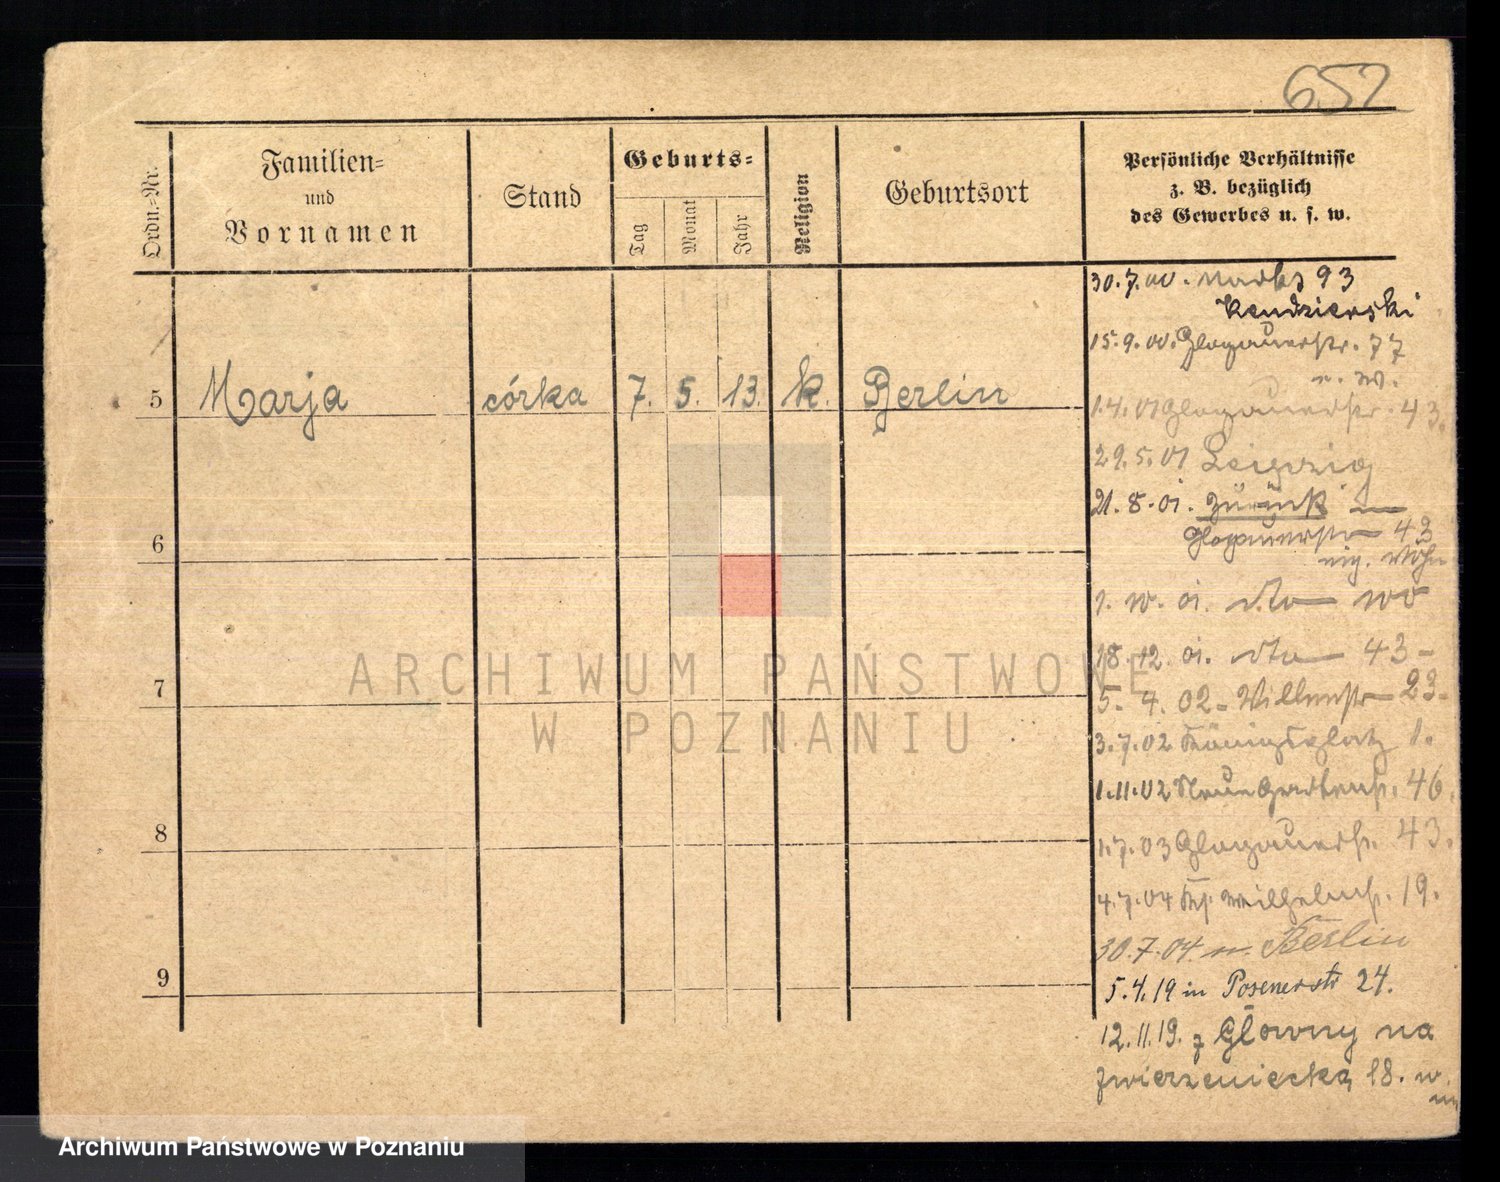 652
Ordn.-Nr.
Familien-
und
Vornamen
Stand
Geburts-
Tag
Monat
Jahr
Religion
Geburtsort
Persönliche Verhältnisse
z. B. bezüglich
des Gewerbes u. s. w.
30.7.00. 93
Kendzierski
15.9.00. Glogauerstr. 77
n. W.
5 Marja córka 7. 5. 13. k. Berlin
1.4.01 Glogauerstr. 43.
29.5.01 Leipzig
21.8.01. zurück in
Glogauerstr 43
6
1. 10. 01. dto 100
18.12.01. dto 43-
7
5. 4. 02 - 23-
3.7.02 Königsplatz 1.
1.11.02 Neue Gartenstr. 46.
8
1.7.03 Glogauerstr. 43.
4.7.04 Wilhelmstr. 19.
30.7.04. n. Berlin
9
5.4.19 in Posenerstr 24.
12.11.19. z Główny na
Zwierzeniecką 18. w.
ARCHIWUM PAŃSTWOWE
W POZNANIU
Archiwum Państwowe w Poznaniu